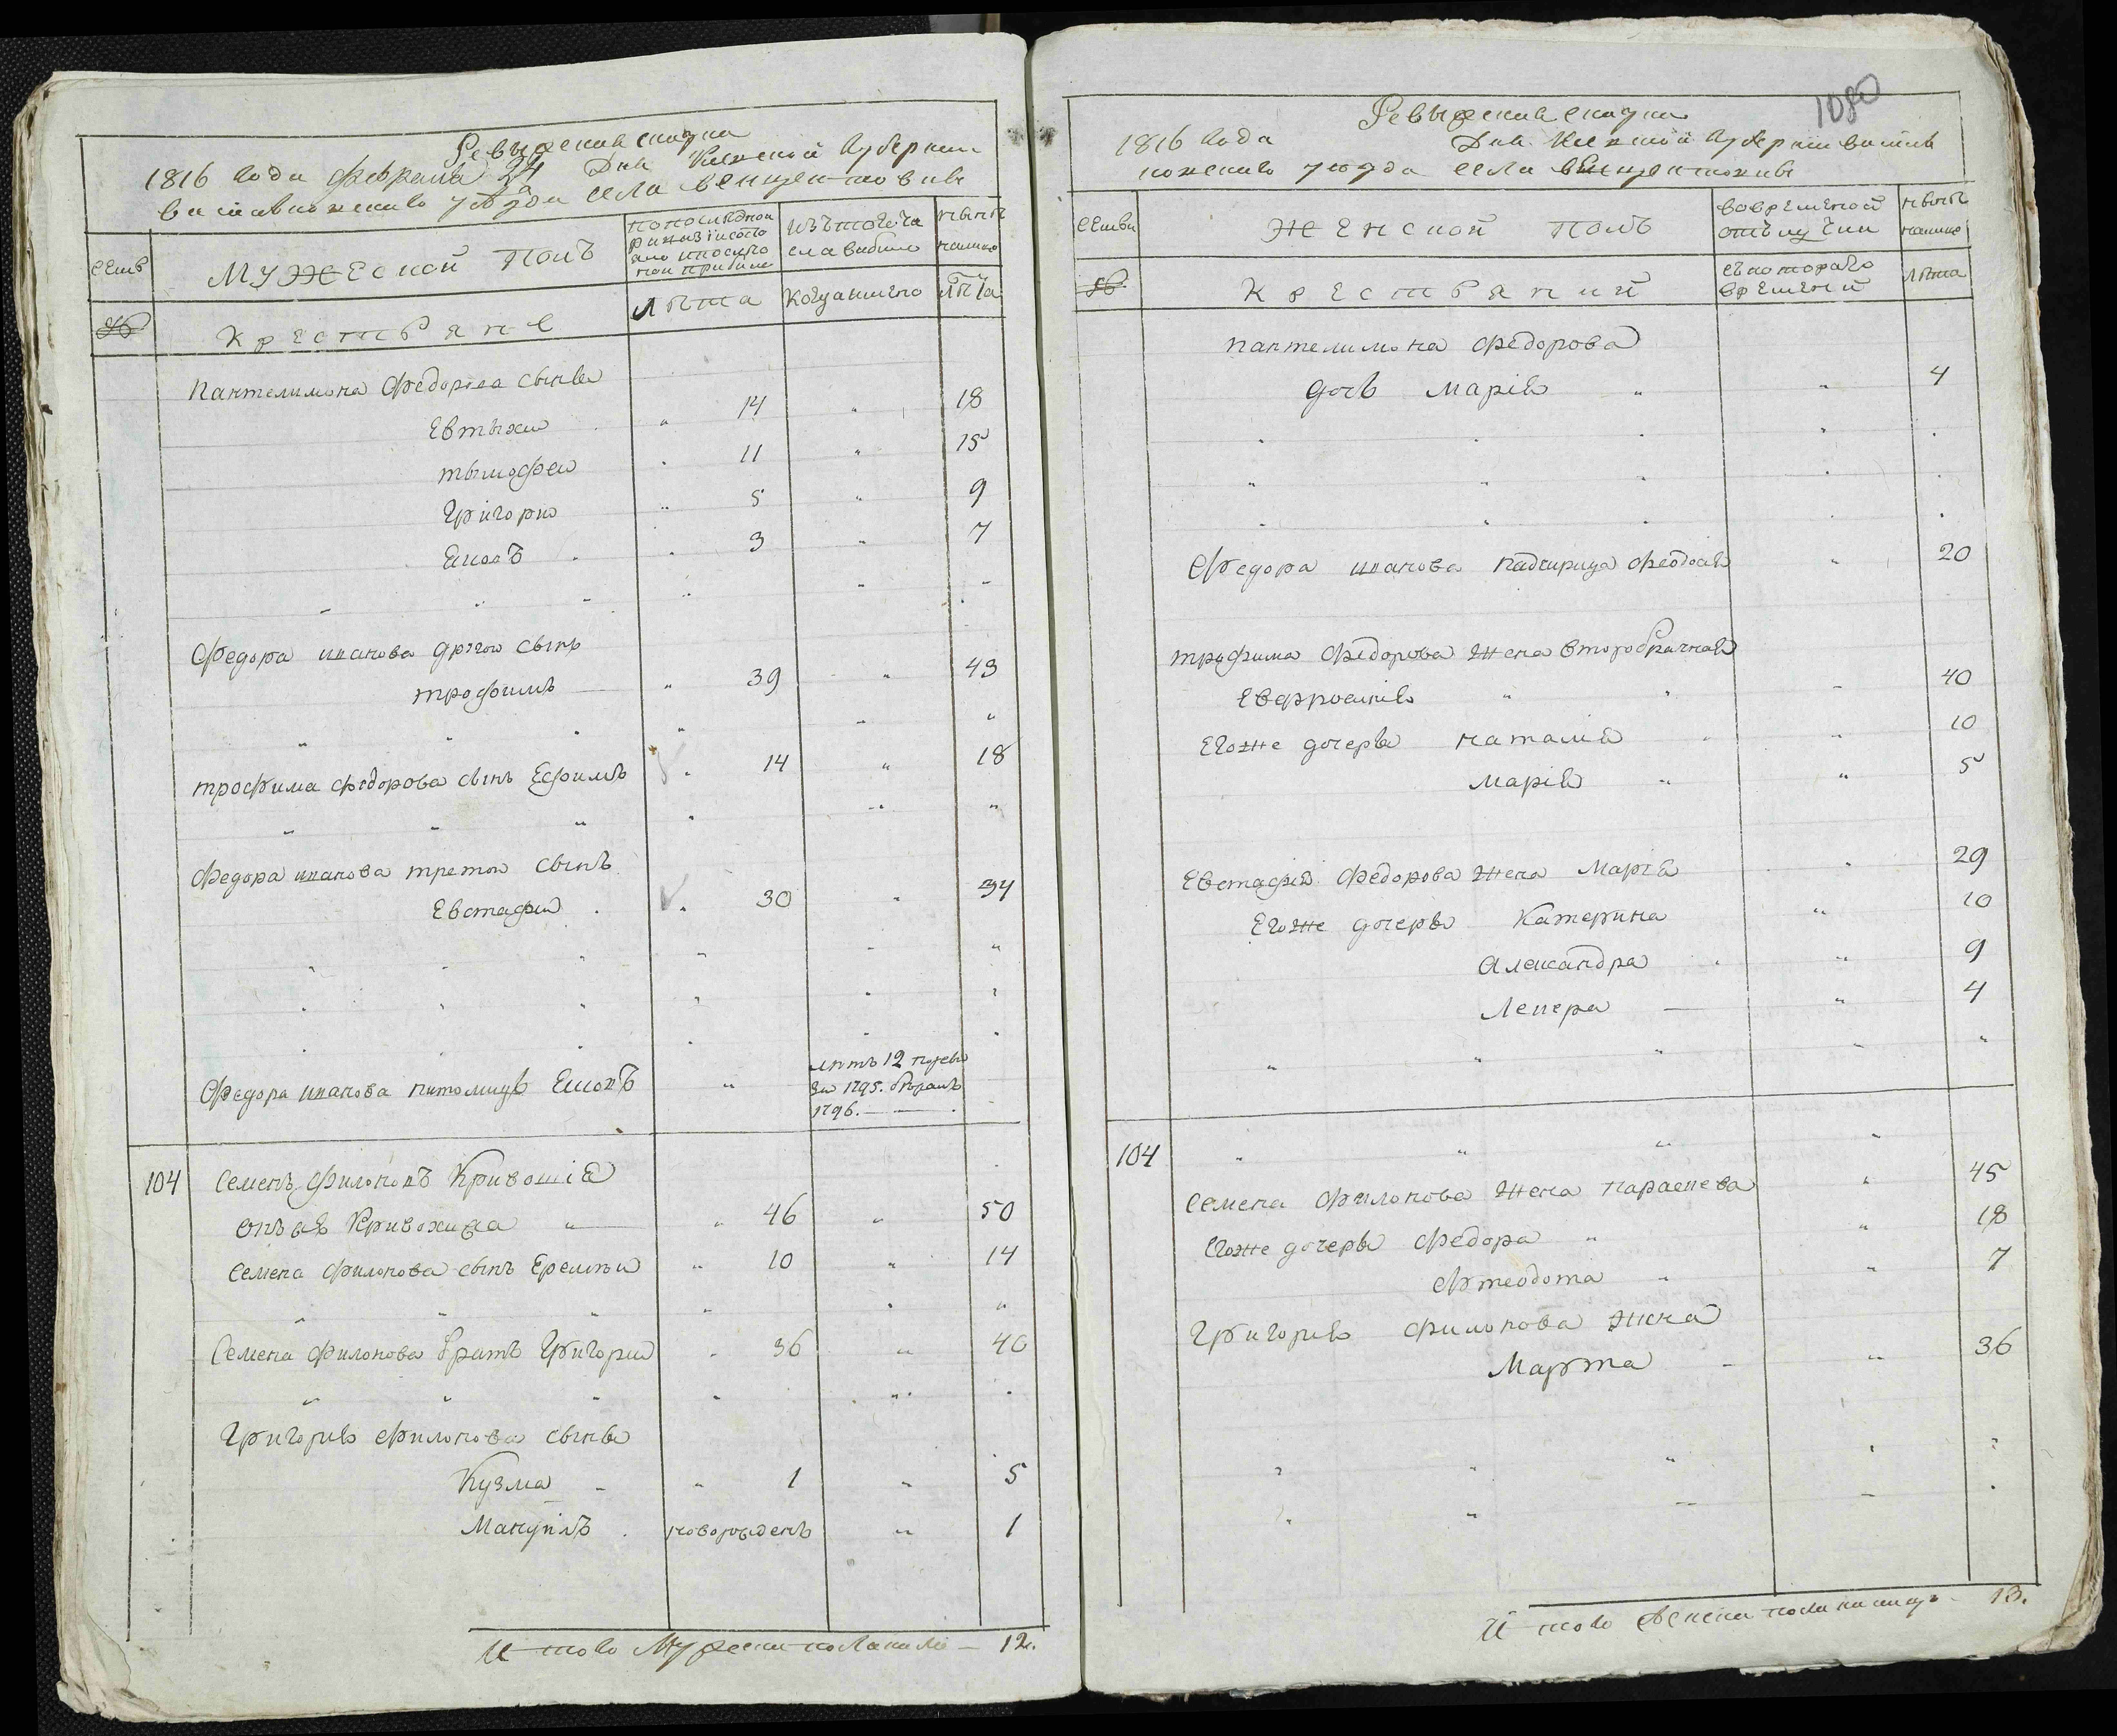 Ревызския сказки
1816 года февраля 24 Дня Киевской Губернии
василковского уезда села венцентовки
семьи
Мужеской Полъ
по последной ревизии состояло и после того прибыло
изъ того числа выбыло
ныне налицо
Крестьяне
Лета
Когда имянно
Лета
Пантелимона Федорова сынве
Евтыхи " 14 " 18
тымофеи " 11 " 15
Григорио " 5 " 9
Яковъ " 3 " 7
Федора иванова другои сынъ
трофимъ " 39 " 43
трофима федорова сынъ Ефимъ " 14 " 18
Федора иванова третои сынъ
Евстафии " 30 " 34
Федора иванова питомицъ Яковъ " летъ 12 
за 1795. 
1796.
104 Семенъ Филоновъ Кривошiя
онъ же Кривохижа " 46 " 50
Семена филонова сынъ Еремеи " 10 " 14
Семена филонова братъ Григории " 36 " 40
Григория филонова сынве
Кузма " 1 " 5
Мануилъ новорожденъ " 1
И того Мужеска пола налицо 12.
1080
Ревызския сказки
1816 года Дня Киевской Губернии василь
ковского уезда села венцентовки
семьи
Женской Полъ
во временой отлучки
ныне налицо
Крестьяний
съ которого времени
лета
пантелимона федорова
дочь марiя " " 4
Федора иванова падчирица феодосия " 20
трофима федорова жена второбрачная
Евфросиния " " 40
Егоже дочеры наталия " 10
марiя " " 5
Евстафiя федорова жена Марiя " 29
Егоже дочеры Катерина " 10
Александра " 9
Ликера " 4
104 " " " "
Семена филонова жена параскева " 45
Егоже дочеры федора " " 18
феодота " " 7
Григория филонова жена
Марта " 36
И того женска пола налицо 13.